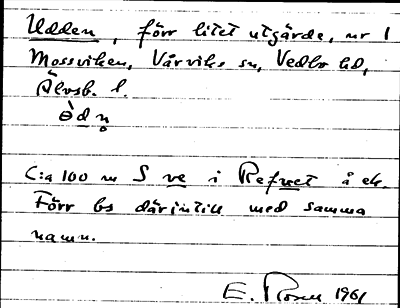 Udden, förr litet utgärde, nr 1
Mossviken, Vårviks sn, Vedbo hd,
Älvsb. l.
C:a 100 m S ve i Refvet å ek.
Förr bs därintill med samma
namn.
E. Rosen 1961